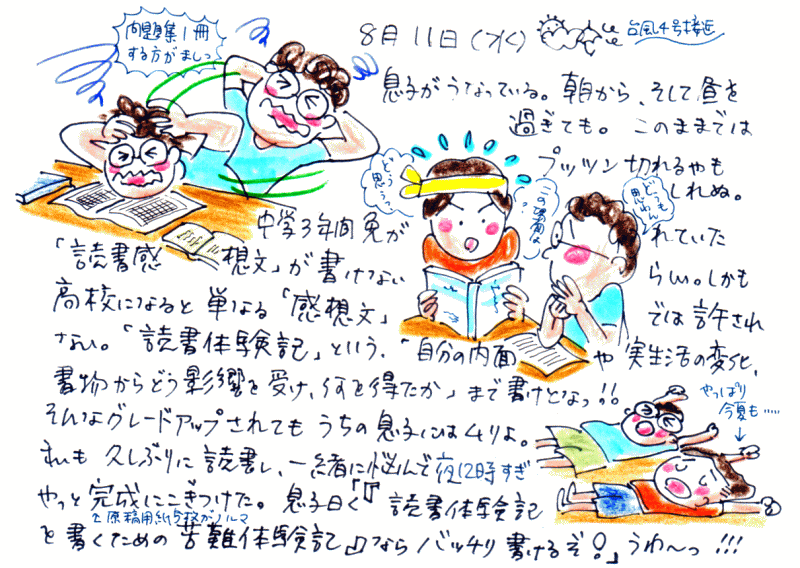 8月11日(水)
台風4号接近
問題集1冊
する方がましっ
息子がうなっている。朝から、そして昼を
過ぎても。このままでは
プッツン切れるやも
しれぬ。
どう思うっ
この場面は?
どうも思わん
中学3年間免がれていた
「読書感想文」が書けないらしい。しかも
高校になると単なる「感想文」では許され
ない。「読書体験記」という、「自分の内面や実生活の変化、
書物からどう影響を受け、何を得たか」まで書けとなっ!!
そんなグレードアップされてもうちの息子にはムリよ。
私も久しぶりに読書し、一緒に悩んで夜12時すぎ
やっと完成にこぎつけた。息子曰く「『読書体験記
を書くための苦難体験記』ならバッチリ書けるぞ!」うわ〜っ!!!
原稿用紙5枚がノルマ
やっぱり
今夏も……